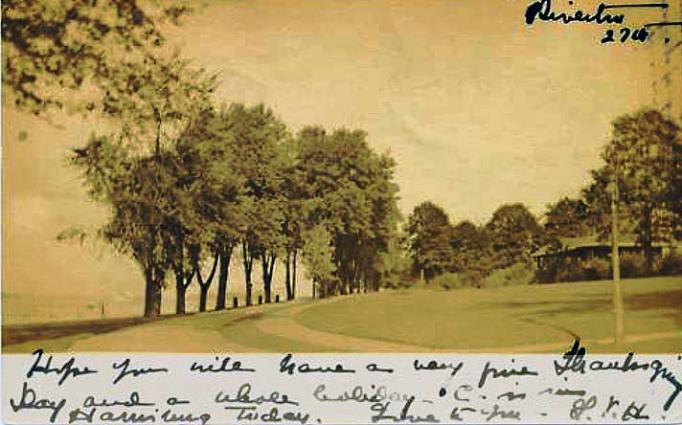 Riverton
27th.
Hope you will have a very fine Thanksgiving
Day and a whole holiday - C. is in
Harrisburg today. Love to you - H.